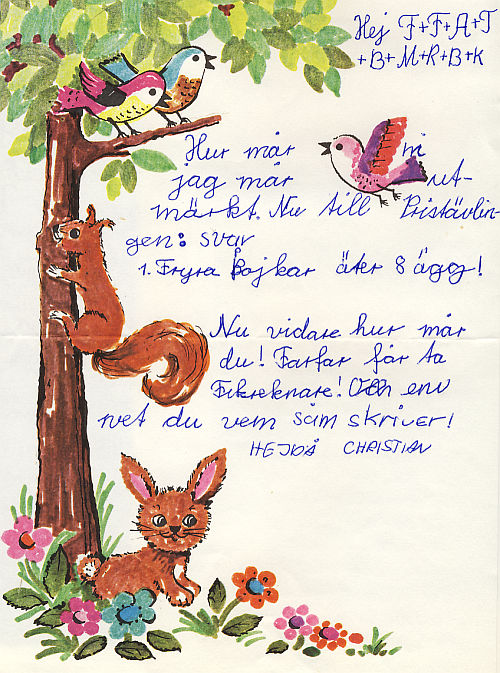 Hej F+F+A+T
+B+M+R+B+K
Hur mår ni
jag mår ut-
märkt. Nu till Pristävlin-
gen: svar
1. Fryra Pojkar äter 8 ägg!
Nu vidare hur mår
du! Farfar får ta
Fikreknare! env
vet du vem som skriver!
HEJDÅ CHRISTIAN